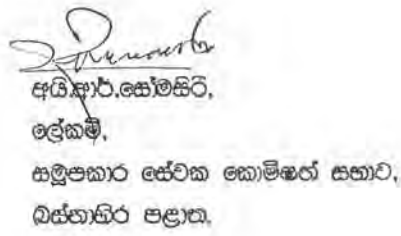 අයි.ආර්.සෝමසිරි,
ලේකම්,
සමූපකාර සේවක කොමිෂන් සභාව,
බස්නාහිර පළාත.